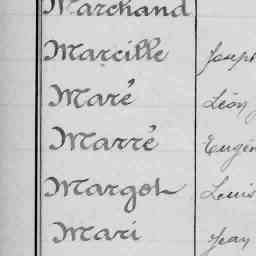 Marchand
Marcille Joseph
Maré Léon
Marré Eugèn
Margot Louis
Mari Jean